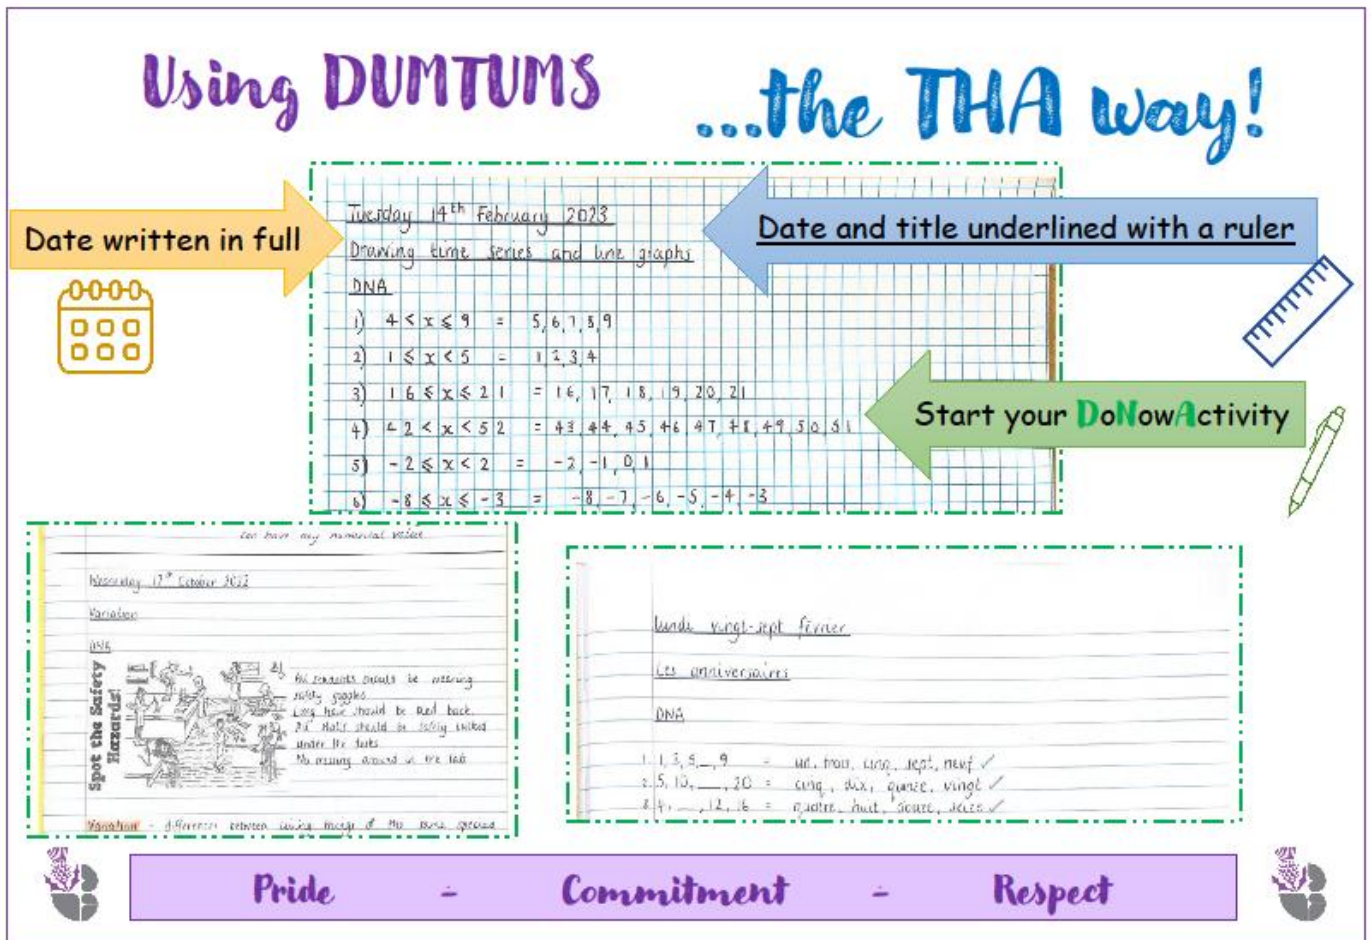 Using DUMTUMS
...the THA way!
Date written in full
Date and title underlined with a ruler
Start your DoNowActivity
Tuesday 14th February 2023
Drawing time series and line graphs
DNA
1) 4 < x ⩽ 9 = 5, 6, 7, 8, 9
2) 1 ⩽ x < 5 = 1, 2, 3, 4
3) 16 ⩽ x ⩽ 21 = 16, 17, 18, 19, 20, 21
4) 42 < x < 52 = 43, 44, 45, 46, 47, 48, 49, 50, 51
5) -2 ⩽ x < 2 = -2, -1, 0, 1
6) -8 ⩽ x ⩽ -3 = -8, -7, -6, -5, -4, -3
can have any numerical value
Wednesday October 2022
Variation
DNA
Spot the Safety
Hazards!
All students should be wearing
safety goggles
Long hair should be tied back.
should be safely tucked
under the desks
No messing around in the lab
Variation - differences between living things of the same species
lundi vingt-sept février
Les anniversaires
DNA
1. 1, 3, 5, _, 9 = un, trois, cinq, sept, neuf ✓
2. 5, 10, _, 20 = cinq, dix, quinze, vingt ✓
3. 4, _, 12, 16 = quatre, huit, douze, seize ✓
Pride - Commitment - Respect